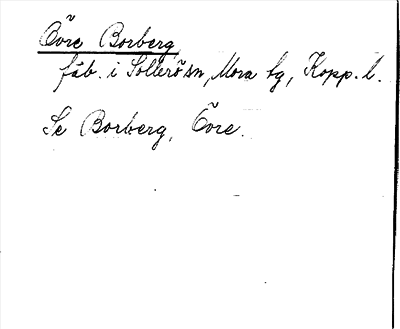 Övre Borberg
fäb. i Sollerö sn, Mora tg, Kopp. l.
Se Borberg, Övre.